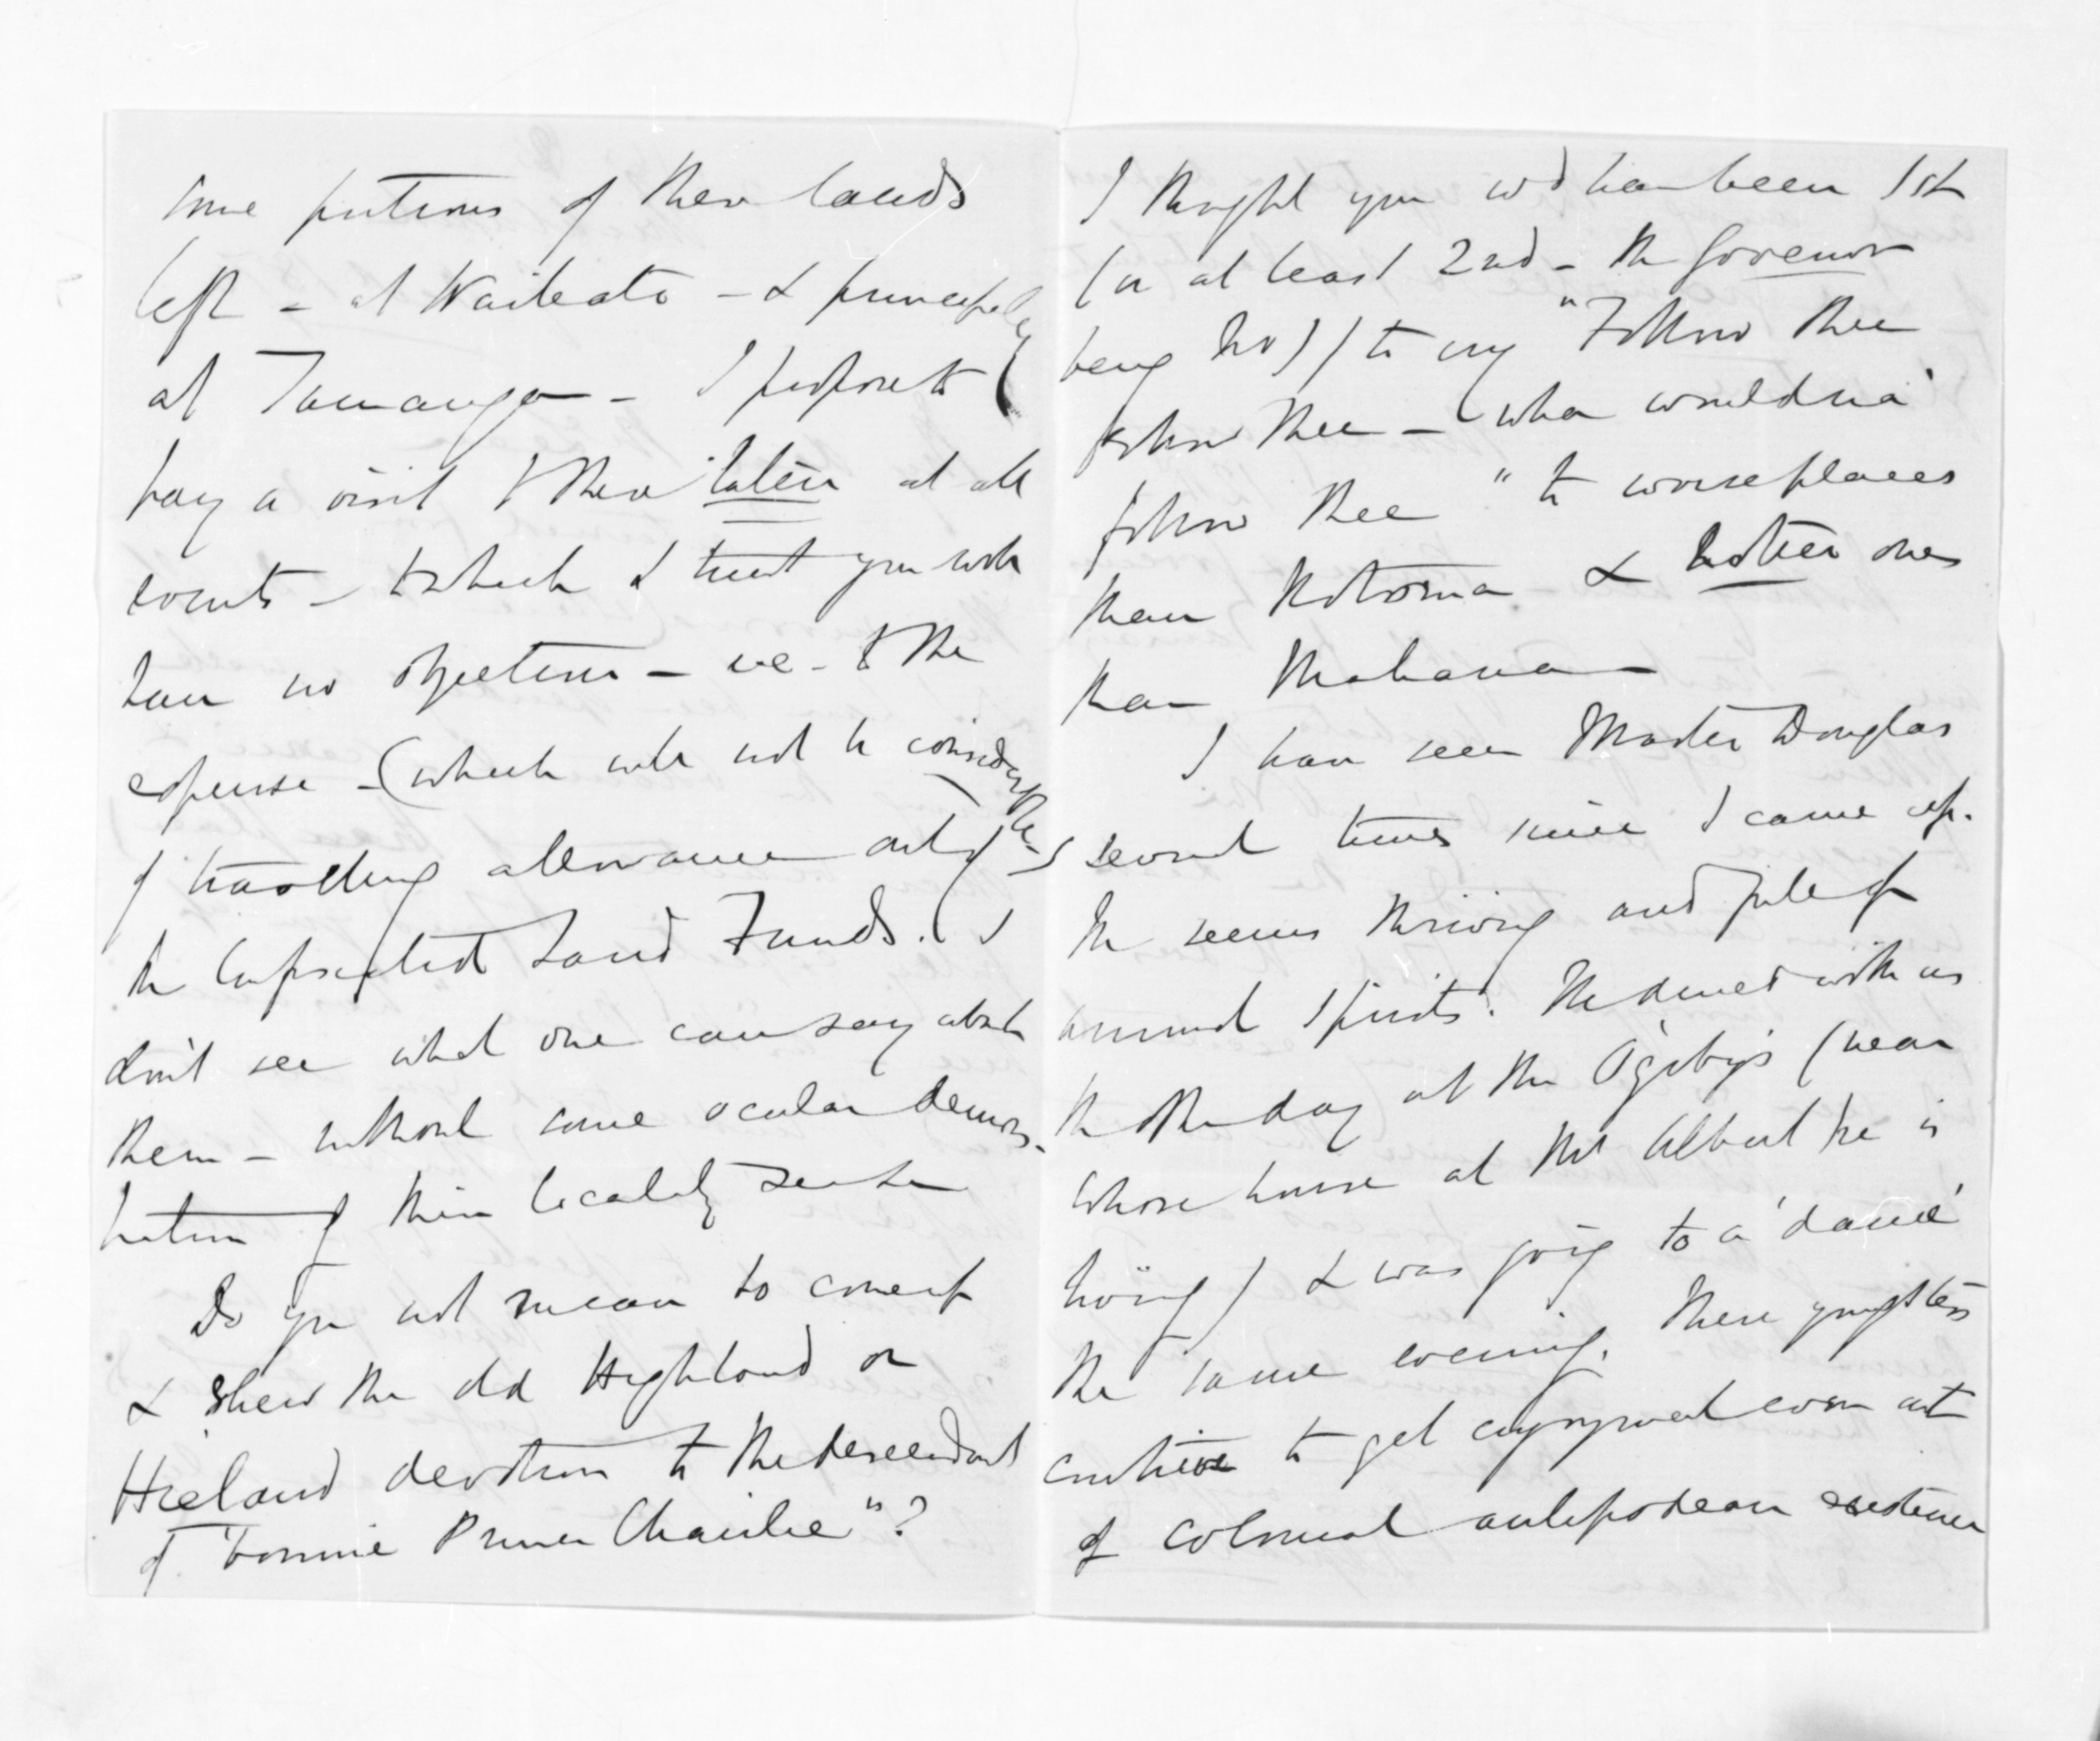 some portions of these lands
left - at Waikato - & principally
at Tauranga - I propose to
pay a visit to these later at all
events - to which I trust you will
have no objection - ie - to the
expense - (which will not be considerable)
of travelling allowance out of
the Confiscated Land Funds. I
don't see what one can say about
them - without some ocular demons-
tration of their locality &
Do you not mean to come up
& shew the old Highland or
Hieland devotion to the descendant
of "bonnie Prince Chairlie"?
I thought you wd have been 1st
(or at least 2nd - the Governor
being No 1) to cry "Follow thee
follow thee - wha wouldna'
follow thee" to worse places
than Rotorua & hotter ones
than Mahana
I have seen Master Douglas
several times since I came up.
He seems thriving and full of
animal spirits. He dined with us
the other day at the Ogilvy's (near
whose house at Mt Albert he is
living) & was going to a 'dance'
the same evening. These youngsters
contrive to get enjoyment even out
of colonial antipodean existence